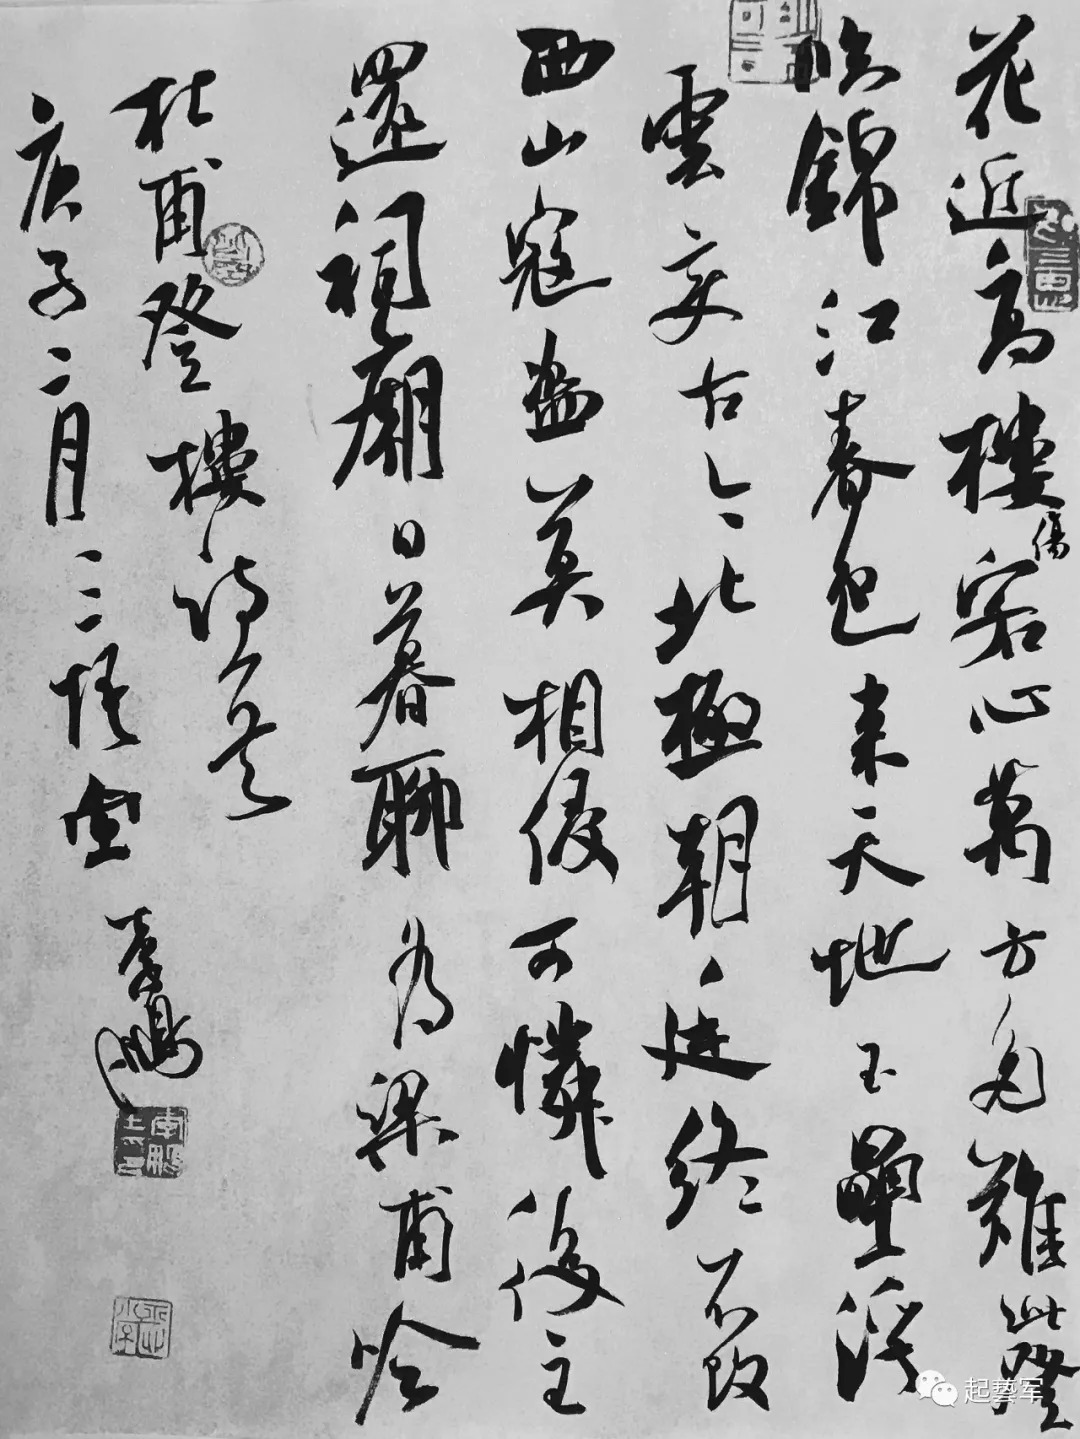 花近高樓傷客心萬方多難此登
臨錦江春色來天地玉壘浮
雲变古今北極朝廷終不改
西山寇盗莫相侵可憐後主
還祠廟日暮聊為梁甫吟
杜甫登樓詩意
庚子二月二三悟堂
李鵬
起藝军